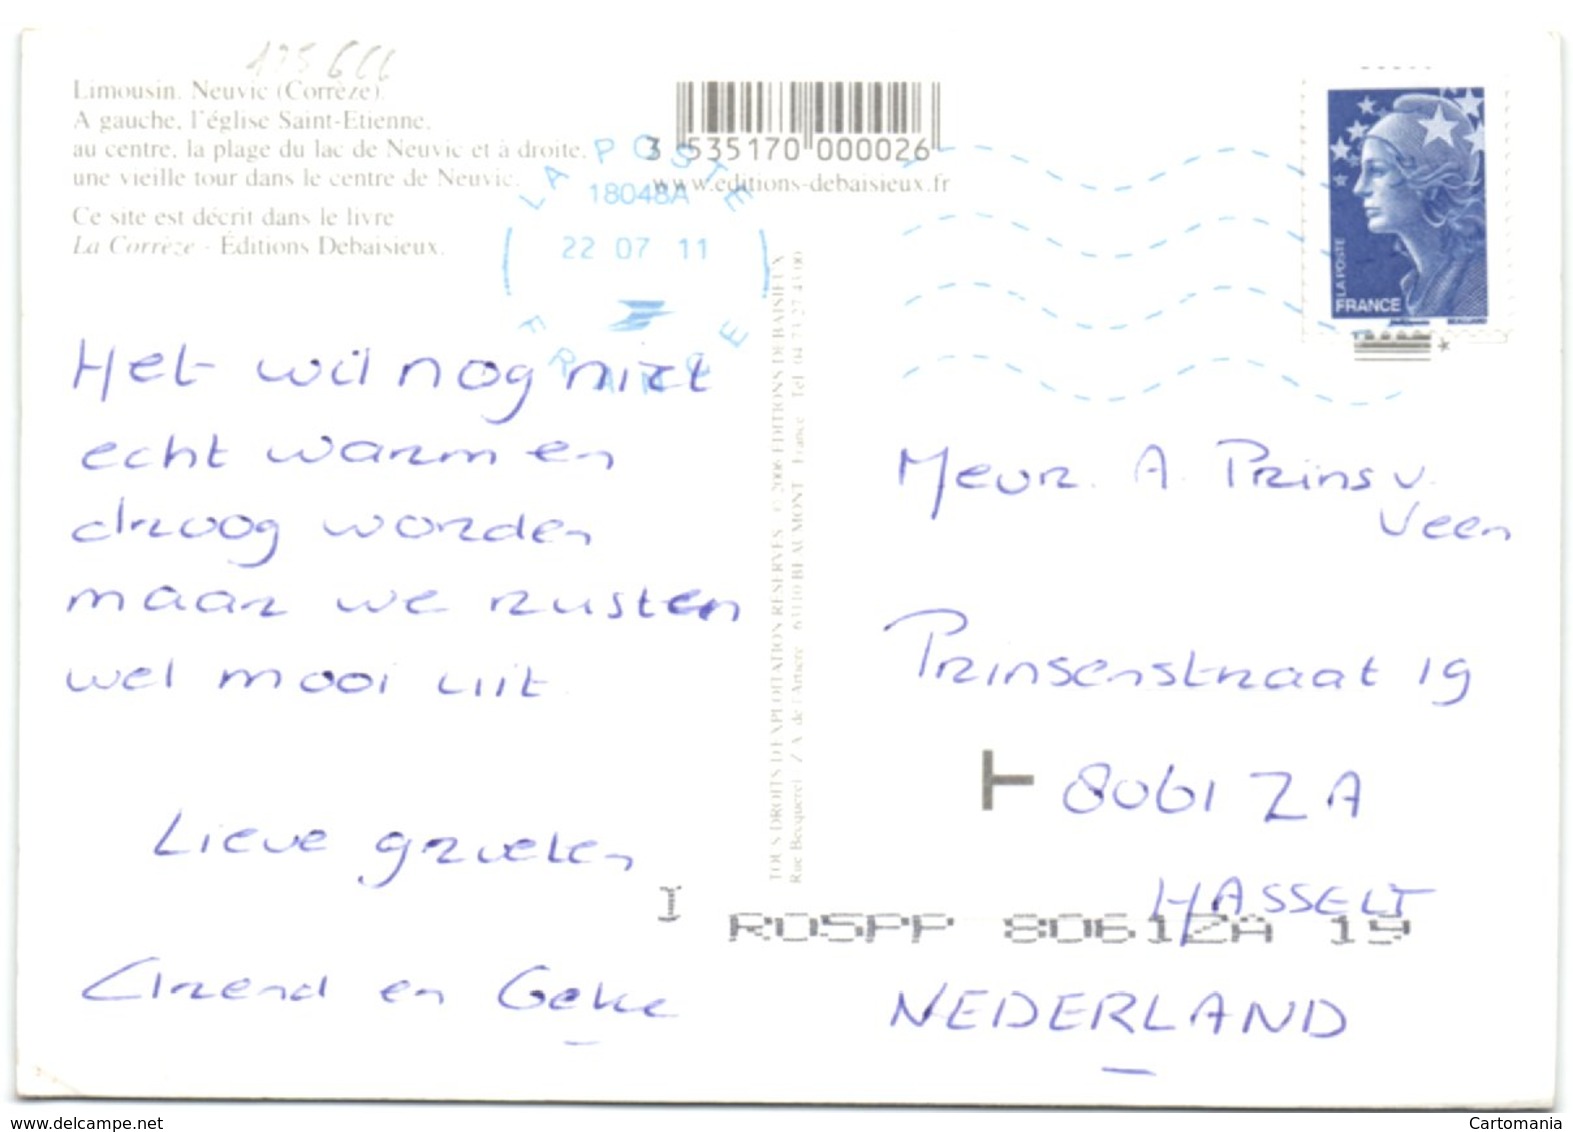 195666
Limousin. Neuvic (Corrèze).
A gauche, l'église Saint-Etienne,
au centre, la plage du lac de Neuvic et à droite,
une vieille tour dans le centre de Neuvic.
Ce site est décrit dans le livre
La Corrèze - Éditions Debaisieux.
3 535170 000026
www.editions-debaisieux.fr
LA POSTE
18048A
22 07 11
FRANCE
LA POSTE
FRANCE
TOUS DROITS D'EXPLOITATION RÉSERVÉS © 2006 EDITIONS DEBAISIEUX
Rue Becquerel Z.A. de l'Artière 63110 BEAUMONT France Tél. 04 73 27 43 00
Het wil nog niet
echt warm en
droog worden
maar we rusten
wel mooi uit
Lieve groeten
Arend en Geke
Mevr. A. Prins v.
Veen
Prinsenstraat 19
8061 ZA
HASSELT
ROSPP 8061ZA 19
NEDERLAND
delcampe.net
Cartomania